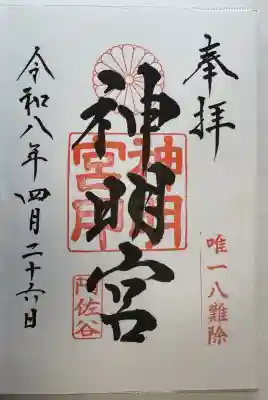 奉拝
唯一八難除
神明宮
神明宮印
阿佐谷
令和八年四月二十六日